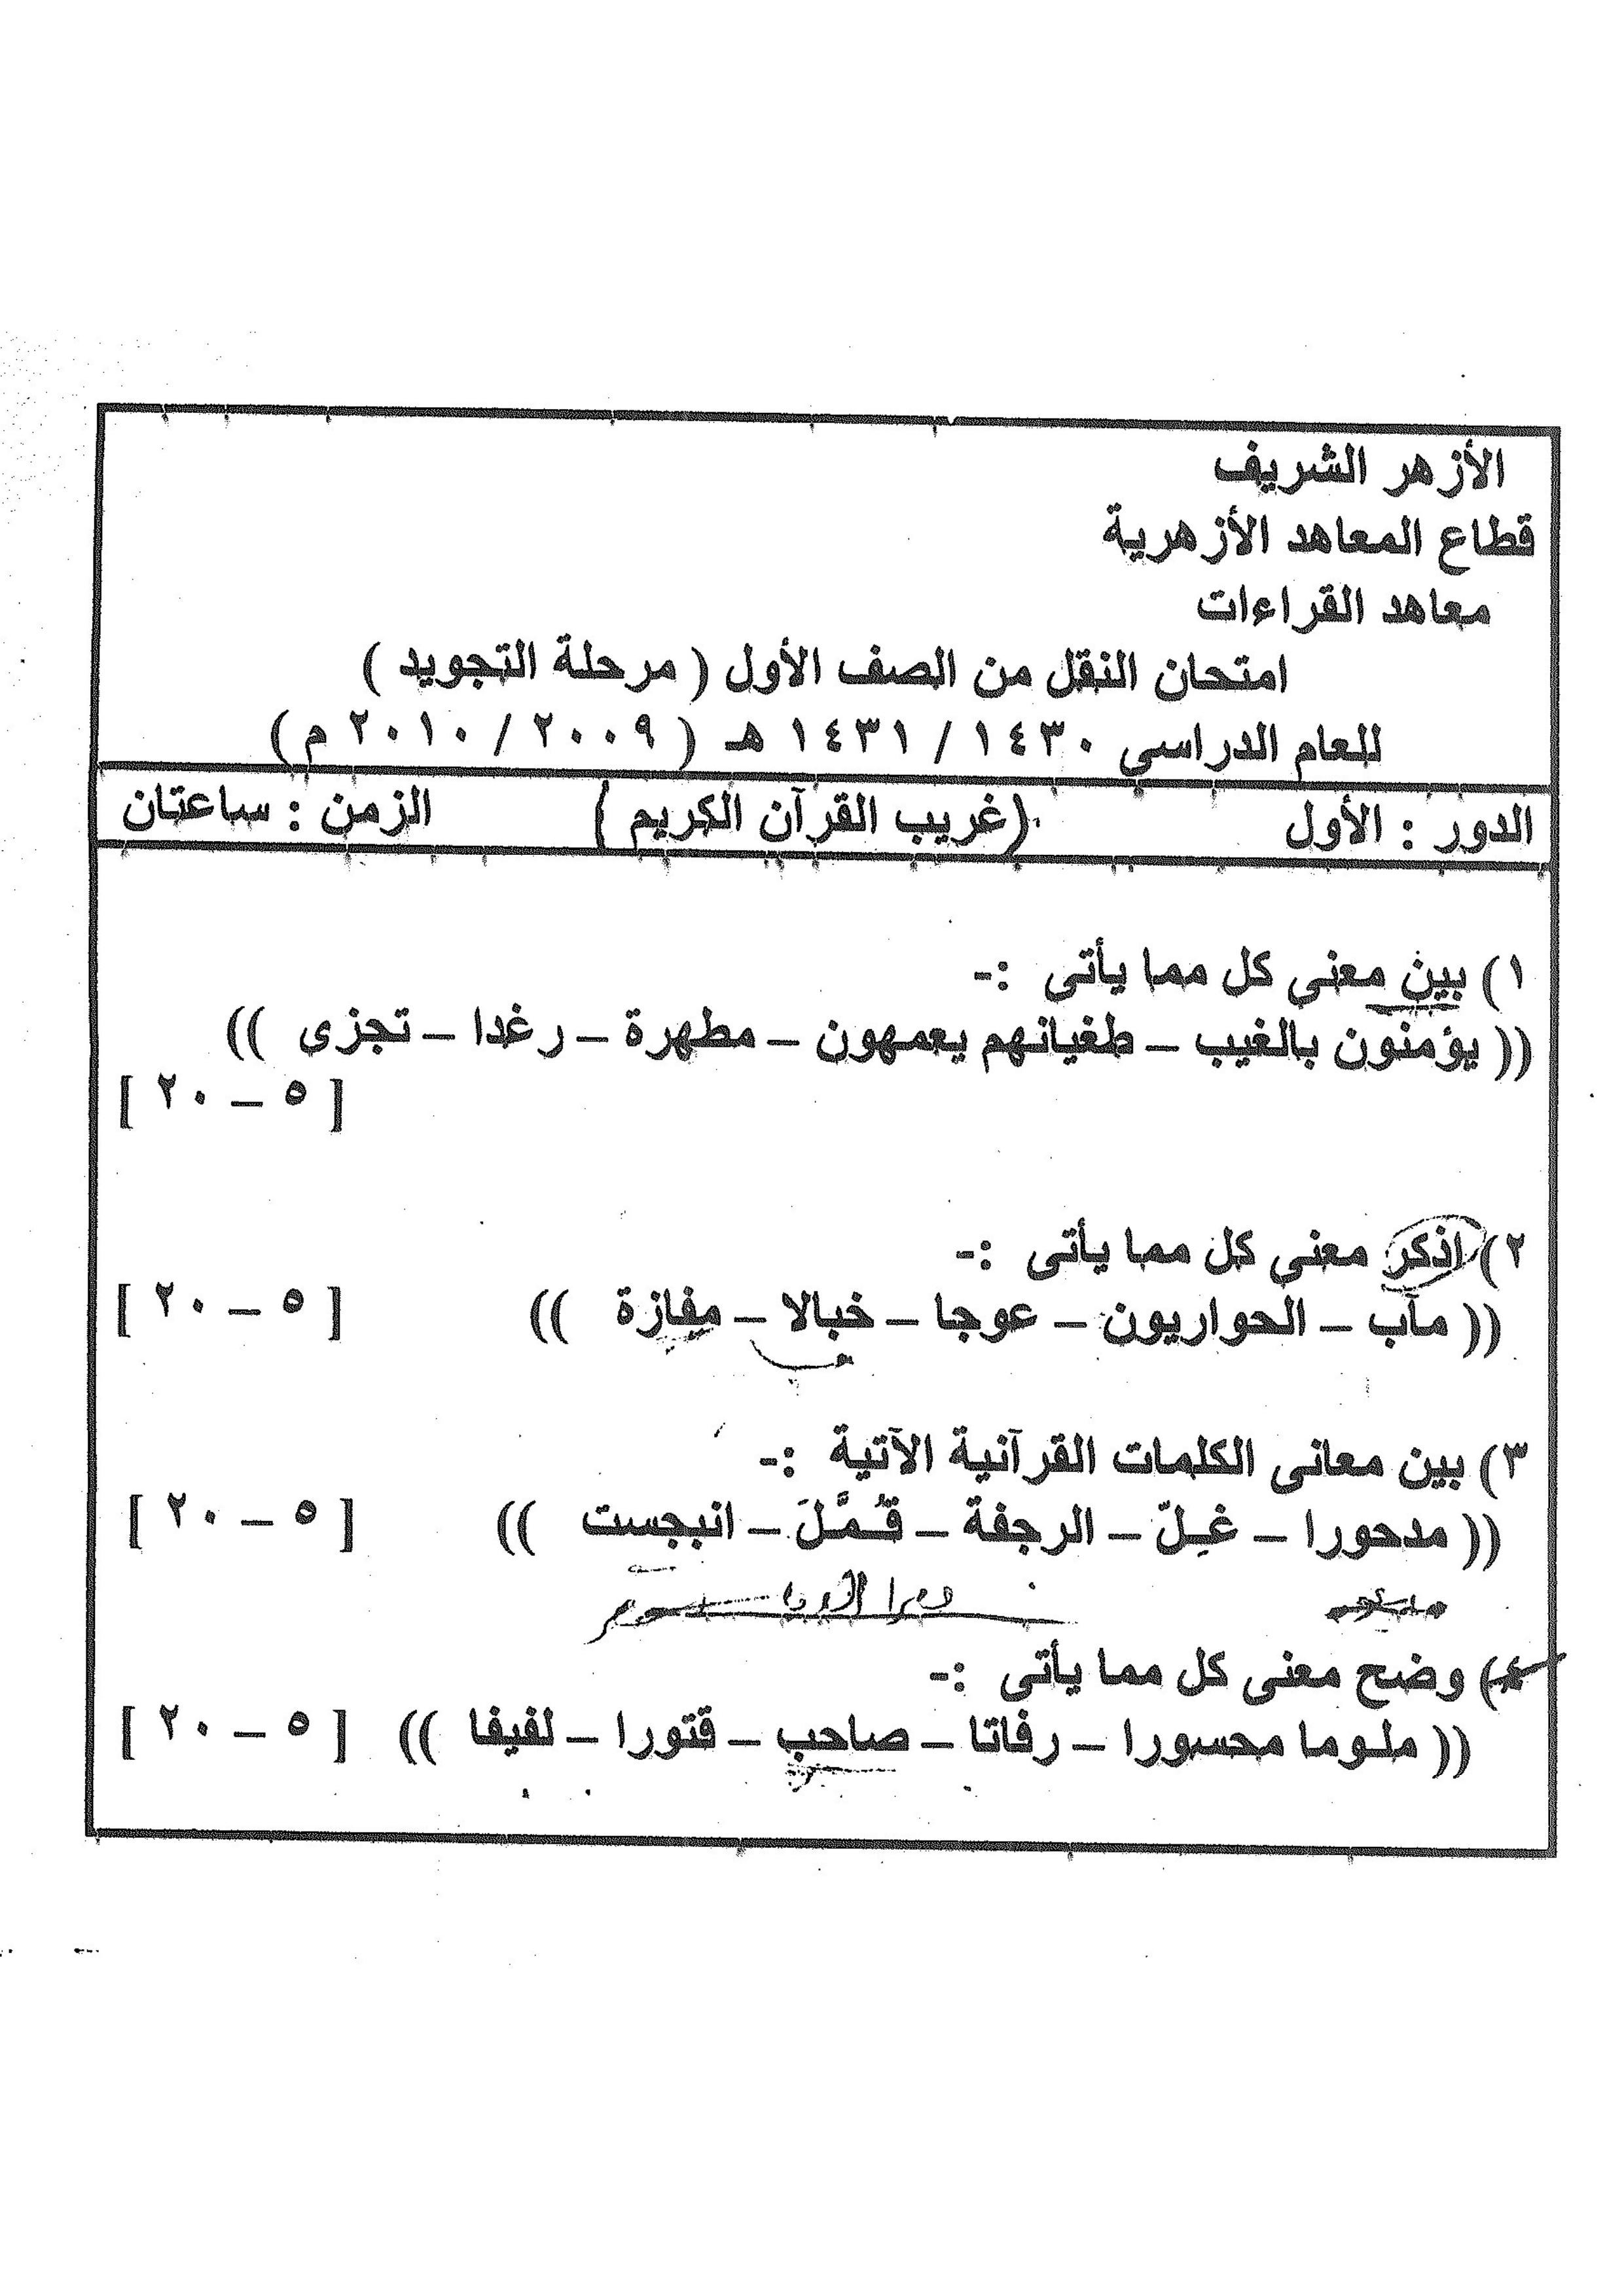 الأزهر الشريف
قطاع المعاهد الأزهرية
معاهد القراءات
امتحان النقل من الصف الأول ( مرحلة التجويد )
للعام الدراسي ١٤٣٠ / ١٤٣١ هـ ( ٢٠٠٩ / ٢٠١٠ م )
الدور : الأول (غريب القرآن الكريم ) الزمن : ساعتان
١) بين معنى كل مما يأتى :-
(( يؤمنون بالغيب – طغيانهم يعمهون – مطهرة – رغدا – تجزى ))
[ ٥ – ٢٠ ]
٢) اذكر معنى كل مما يأتى :-
(( مآب – الحواريون – عوجا – خبالا – مفازة )) [ ٥ – ٢٠ ]
٣) بين معانى الكلمات القرآنية الآتية :-
(( مدحورا – غِـلّ – الرجفة – قُـمَّـلَ – انبجست )) [ ٥ – ٢٠ ]
٤) وضح معنى كل مما يأتى :-
(( ملـوما محسورا – رفاتا – صاحب – قتورا – لفيفا )) [ ٥ – ٢٠ ]